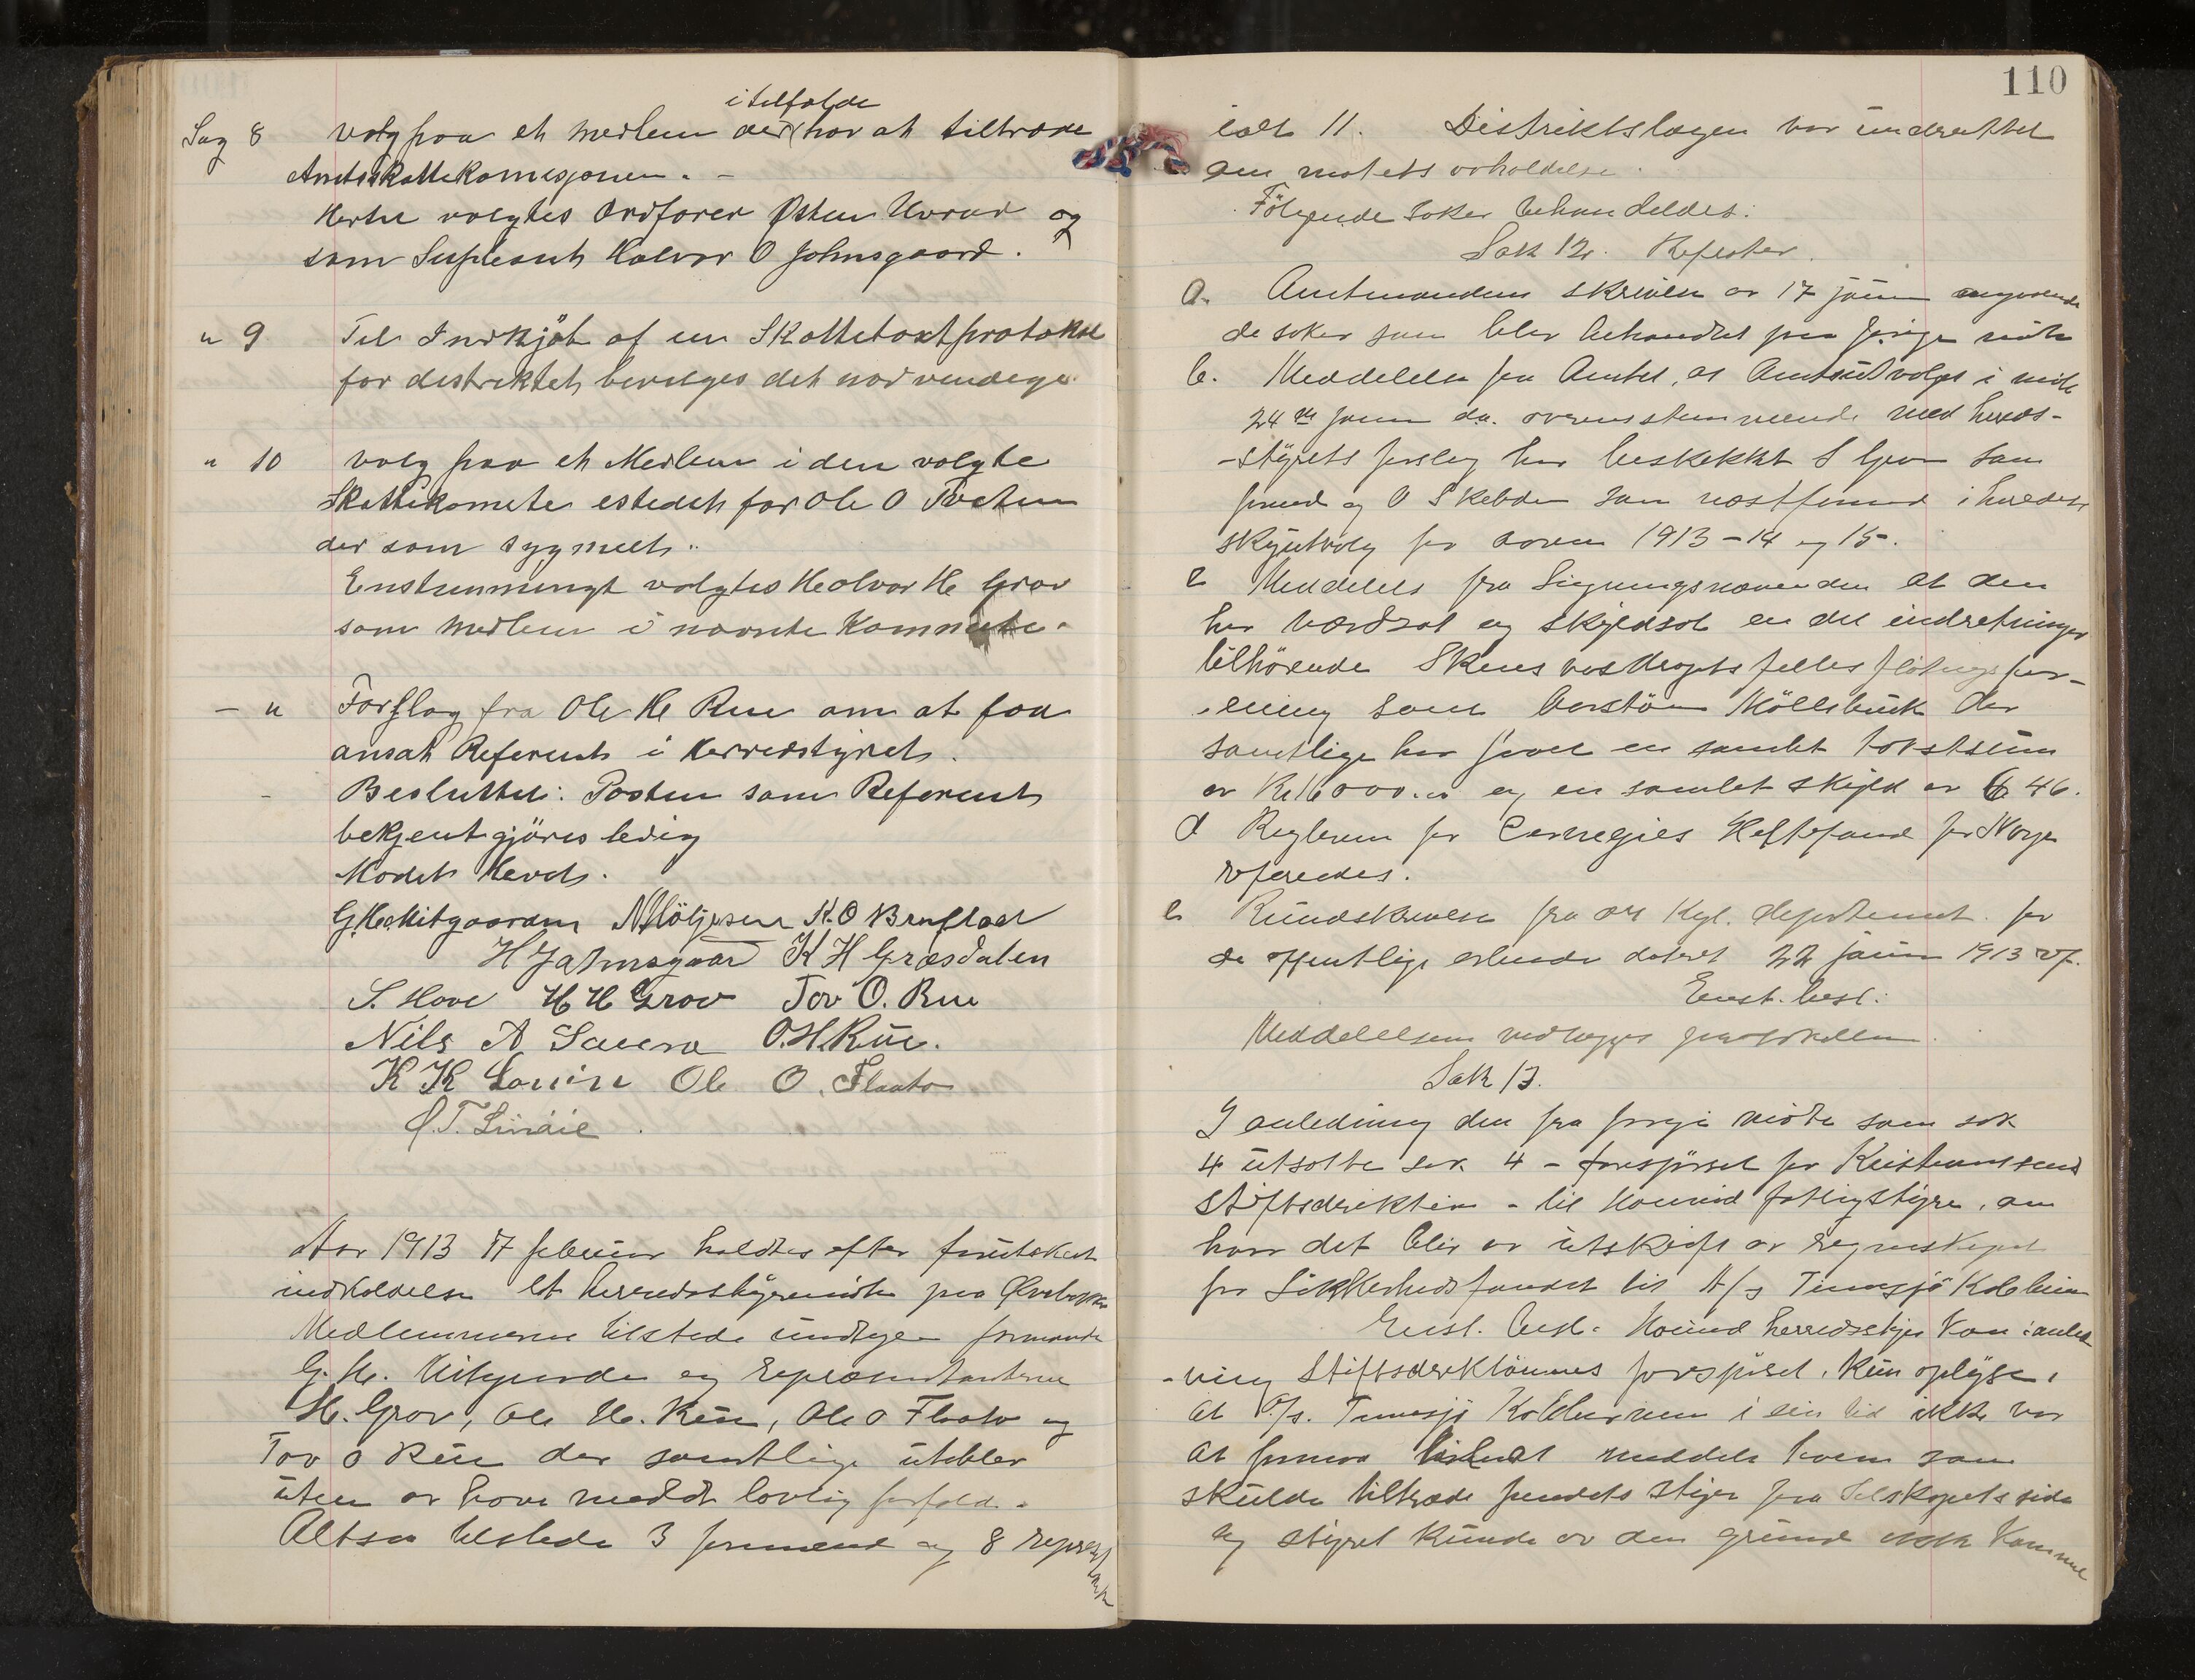 i tilfælde
Sag 8 valg paa et medlem der har at tiltræde
Amtsskattekomisjonen. -
Hertil valgtes Ordfører Østen Uvraa og
som Supleant Halvor O Johnsgaard.
" 9 Til Indkjøb af en Skattetaxtprotokol
for distriktet bevilges det nødvendige
" 10 valg paa et Medlem i den valgte
Skattekomete istedet for Ole O
der som sygmelt.
Enstemmingt valgtes Halvor H Grov
som medlem i nævnte Kommite.
- " Forslag fra Ole H Rue om at faa
ansat Referent i Herredstyret.
- Besluttet: Posten som Referent
bekjentgjøres ledig
Mødet Hevet.
G. H. Mitgaarden N Höljesen K. O Brufladt
H Jahnsgaard K H Græsdalen
S. Hove H H Grov Tov O. Rue
Nils A Sauera O. H. Rue.
K K Louin Ole O. Flaato
O. T. Liväie
Aar 1913 17 februar holdtes efter forutskut
indkaldelse et herredsstyremøte paa
Medlemmerne tilstede undtagen formand
G. H. Mitgaarden og repræsentanterne
H. Grov, Ole H. Rue, Ole O Flaato og
Tov O Rue der samtlige uteblev
uten at have meddt lovlig forfald.
Altsaa tilstede 3 formænd og 8 repræsentanter
110
ialt 11. Distriktslægen var underrettet
om møtets avholdelse.
Følgende saker behandledes:
Sak 12. Refester.
a. Amtmandens skrivelse av 17 januar angaaende
de saker som blev behandlet paa forrige møte
b. Meddelelse fra Amtet, at Amtsutvalget i møte
24 de januar d.a. overensstemmende med herreds-
-styrets forslag har beskikket S Grov som
formand og O Skebde som næstformand i herredets
skjutvalg for aarene 1913-14 og 15.
c Meddelels fra Ligningsnævnden at den
har værdsat og skyldsat en del indretninger
tilhørende Skiens vasdragets felles fløtnings for-
-ening samt Möllebruk der
samtlige har faaet en samlet takstsum
av Kr 16000.00 og en samlet skyld av 46.
d Reglerne for Carnegies Heltefond for Norge
refereredes.
e Rundskrivelse fra det Kgl. departement for
de offentlige arbeide datert 22 januar 1913
Enst. besl:
Meddelelsen vedlægges protokollen.
Sak 13.
I anledning den fra forrige møte som sak
4 utsatte sak 4 - forespørsel fra Kristianssand
stiftsdirektion - til Hovind fattigstyre, om
hvor det blir av utskrift av regnskapet
for Sikkerhedsfondet til A/s Tinnsjø Kolbruen
Enst. Besl. Hovind herredsstyre kan i anled
-ning Stiftsdirektionens forespørsel, kun oplyse,
at A/s. Tinnsjø Kolbruen i sin tid ikke var
at formaa til at meddele hvem som
skulde tiltræde fondets styre fra selskapets side
og styret kunde av den grund ikke komme